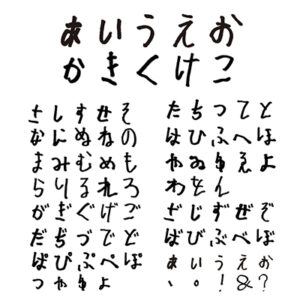 あいうえお
かきくけこ
さしすせそ
なにぬねの
まみむめも
らりるれろ
がぎぐげご
だぢづでど
ぱぴぷぺぽ
っゃゅょ
たちつてと
はひふへほ
やゐゆゑよ
わをん
ざじずぜぞ
ばびぶべぼ
ぁぃぅぇぉ
、。！&？